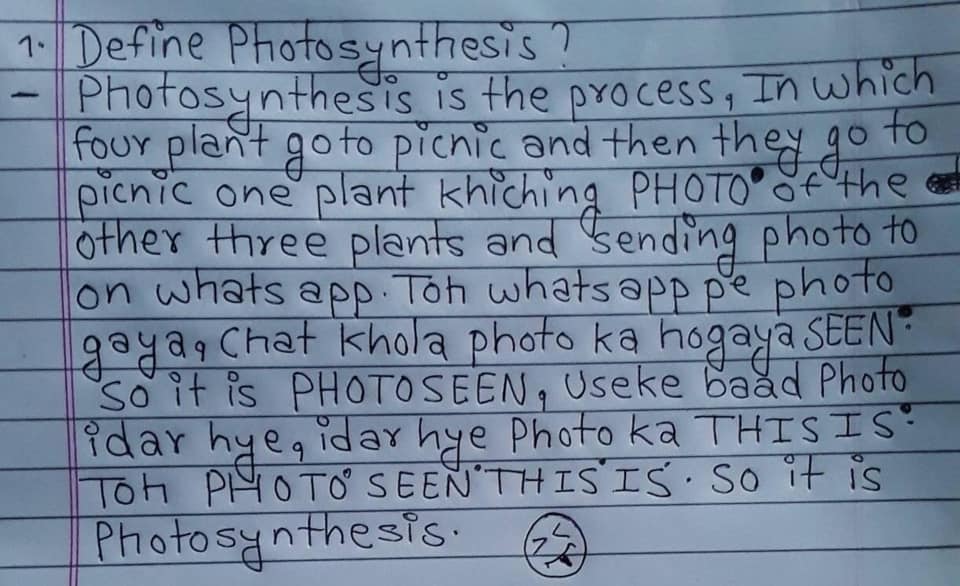 1. Define Photosynthesis?
- Photosynthesis is the process, In which
four plant goto picnic and then they go to
picnic one plant khiching PHOTO of the
other three plants and sending photo to
on whats app. Toh whatsapp pe photo
gaya, Chat khola photo ka hogaya SEEN.
So it is PHOTOSEEN, Useke baad Photo
idar hye, idar hye Photo ka THIS IS.
Toh PHOTO SEEN THIS IS. So it is
Photosynthesis.